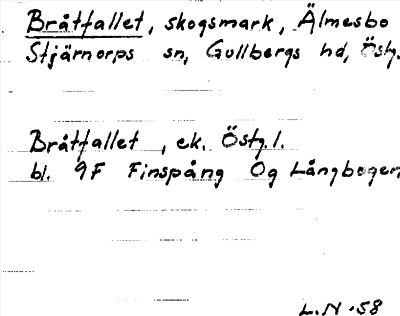 Bråtfallet, skogsmark, Älmesbo
Stjärnorps sn, Gullbergs hd, Östg.
Bråtfallet, ek. Östg. l.
bl. 9F Finspång Og Långbogen
L.N. 58